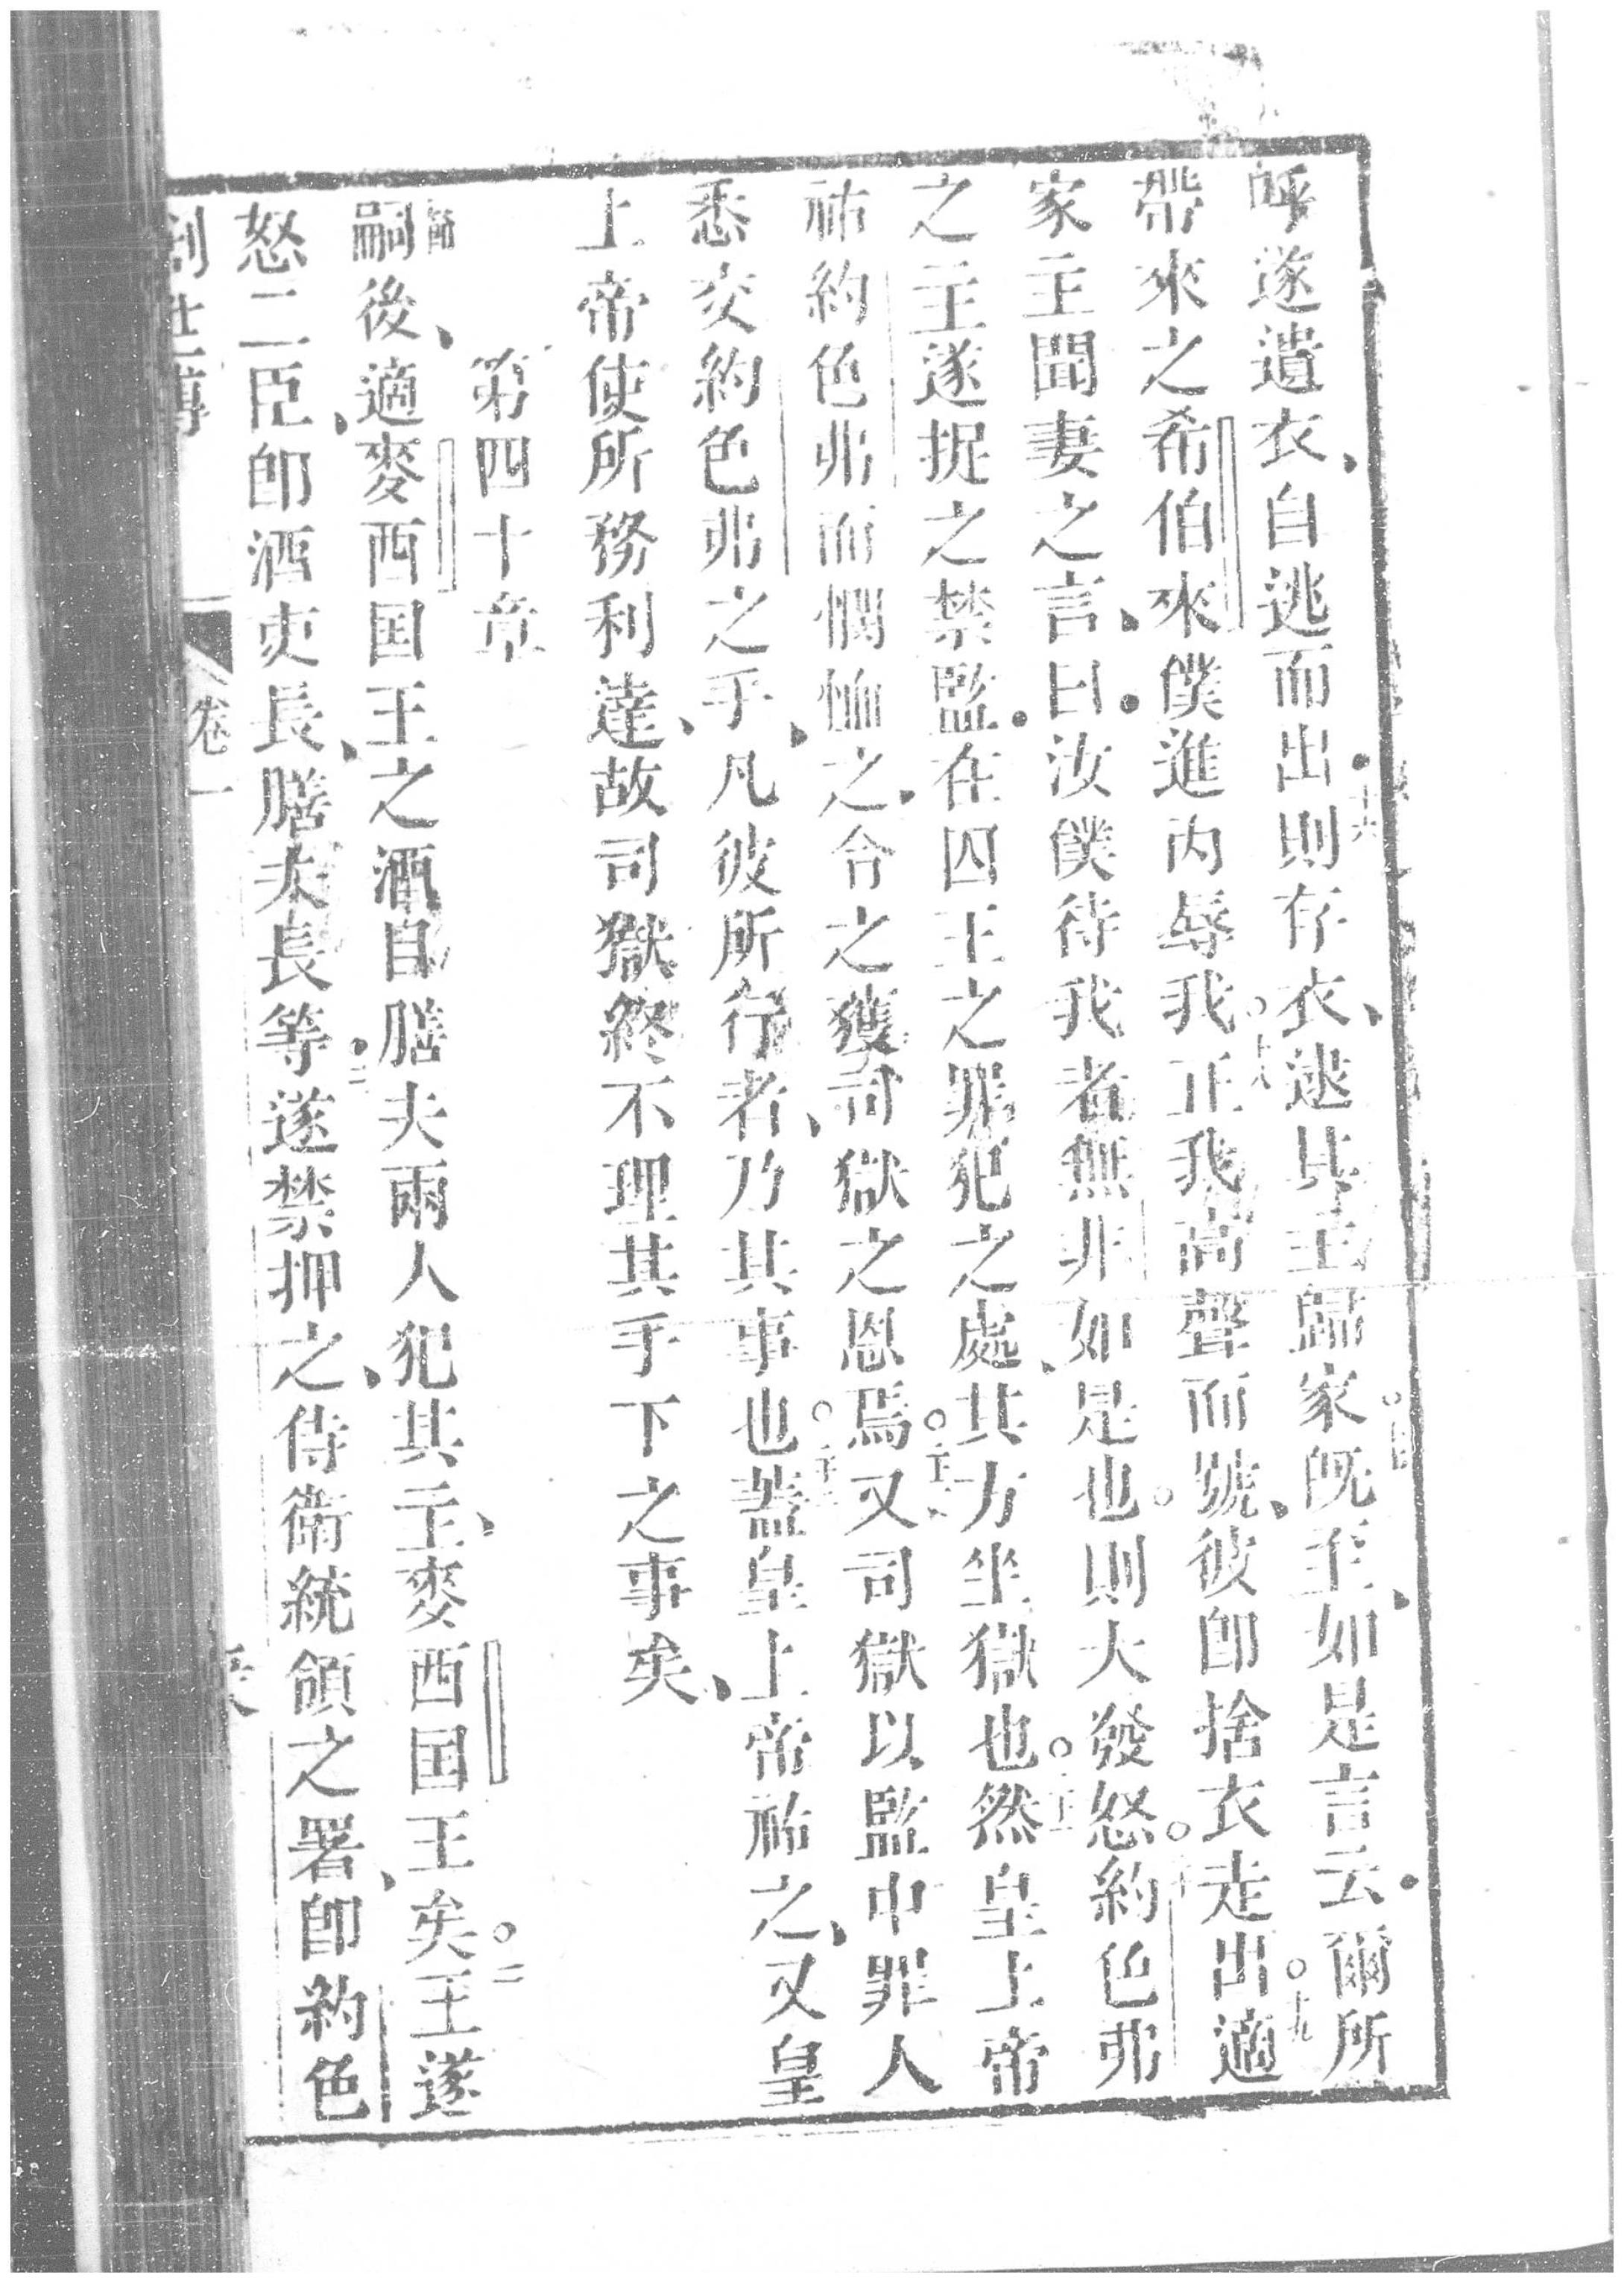 呼遂遺衣、自逃而出。則存衣、逮其主歸家。既至、如是言云。爾所
帶來之希伯來僕進內辱我。正我高聲而號、彼即捨衣走出。適
家主聞妻之言、曰。汝僕待我者無非如是也。則大發怒。約色弗
之主遂捉之禁監。在囚王之罪犯之處、其方坐獄也。然皇上帝
祐約色弗而憫恤之、令之獲司獄之恩焉。又司獄以監中罪人
悉交約色弗之手、凡彼所行者、乃其事也。蓋皇上帝祐之、又皇
上帝使所務利達、故司獄終不理其手下之事矣、
第四十章
一節嗣後、適麥西国王之酒司膳夫兩人、犯其主、麥西国王矣。二王遂
怒二臣、即酒吏長、膳夫長等。三遂禁押之、侍衛統領之署、即約色
創世傳 卷一